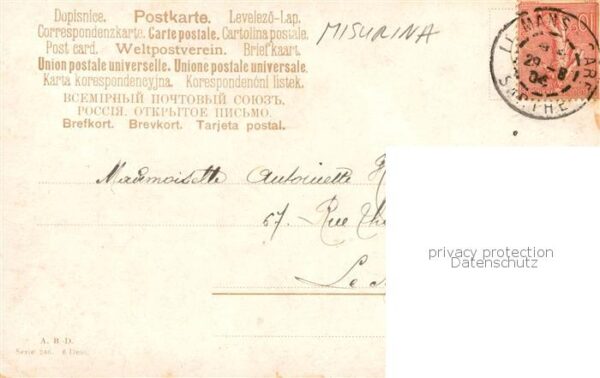 Dopisnice. Postkarte. Levelező-Lap.
Correspondenzkarte. Carte postale. Cartolina postale.
Post card. Weltpostverein. Brief kaart.
Union postale universelle. Unione postale universale.
Karta korespondencyjna. Korespondenční lístek.
ВСЕМІРНЫЙ ПОЧТОВЫЙ СОЮЗЪ.
РОССІЯ. ОТКРЫТОЕ ПИСЬМО.
Brefkort. Brevkort. Tarjeta postal.
MISURINA
LE MANS GARE
SARTHE
04
10
Mademoiselle Antoinette
67. Rue
Le
privacy protection
Datenschutz
A. R. D.
Serie 246. 6 Dess.